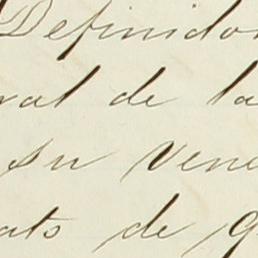 Definidor
ral de la
su Vene
ats de g